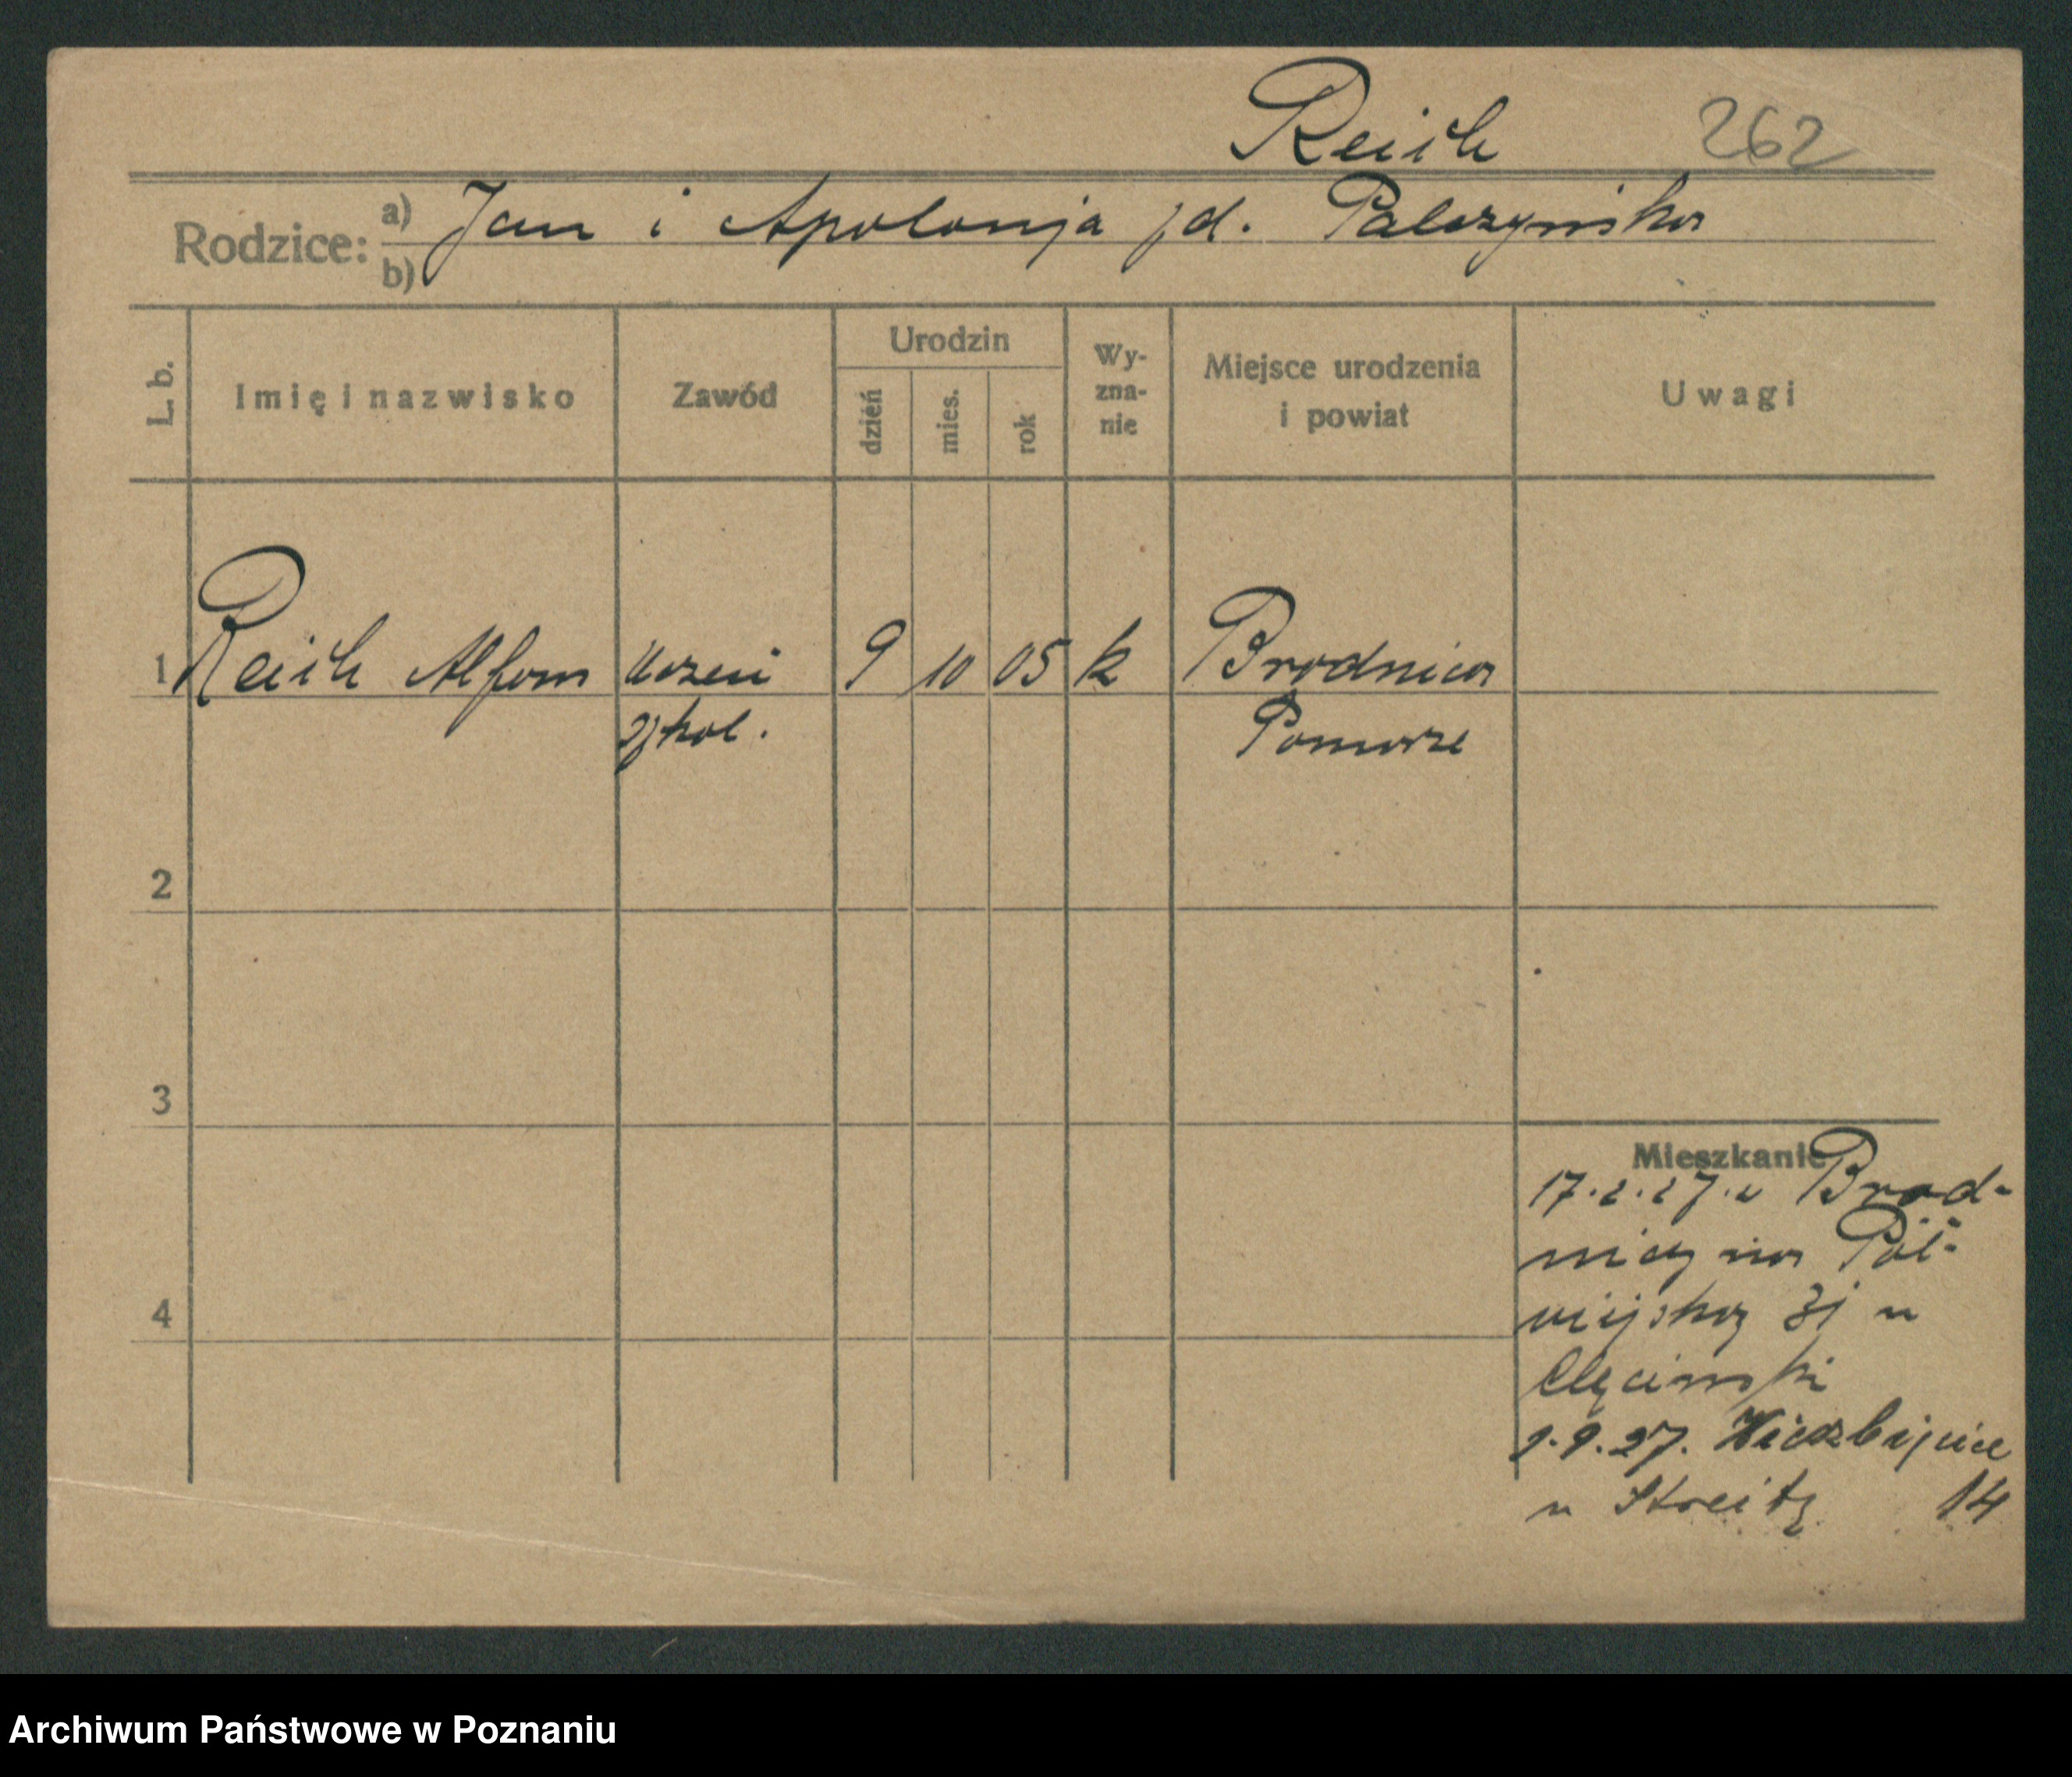 Reich 262
Rodzice: a) Jan i Apolonja zd. Palczyńska
b)
L. b. Imię i nazwisko Zawód Urodzin dzień mies. rok Wy-zna-nie Miejsce urodzenia i powiat Uwagi
1 Reich Alfons Uczeń 9 10 05 k Brodnica
szkol. Pomorze
2
3
Mieszkanie
17.2.27. z Brod-
nicy na Pół-
wiejską u
4
1.9.27. Wierzbięcice
u Streitz 14
Archiwum Państwowe w Poznaniu